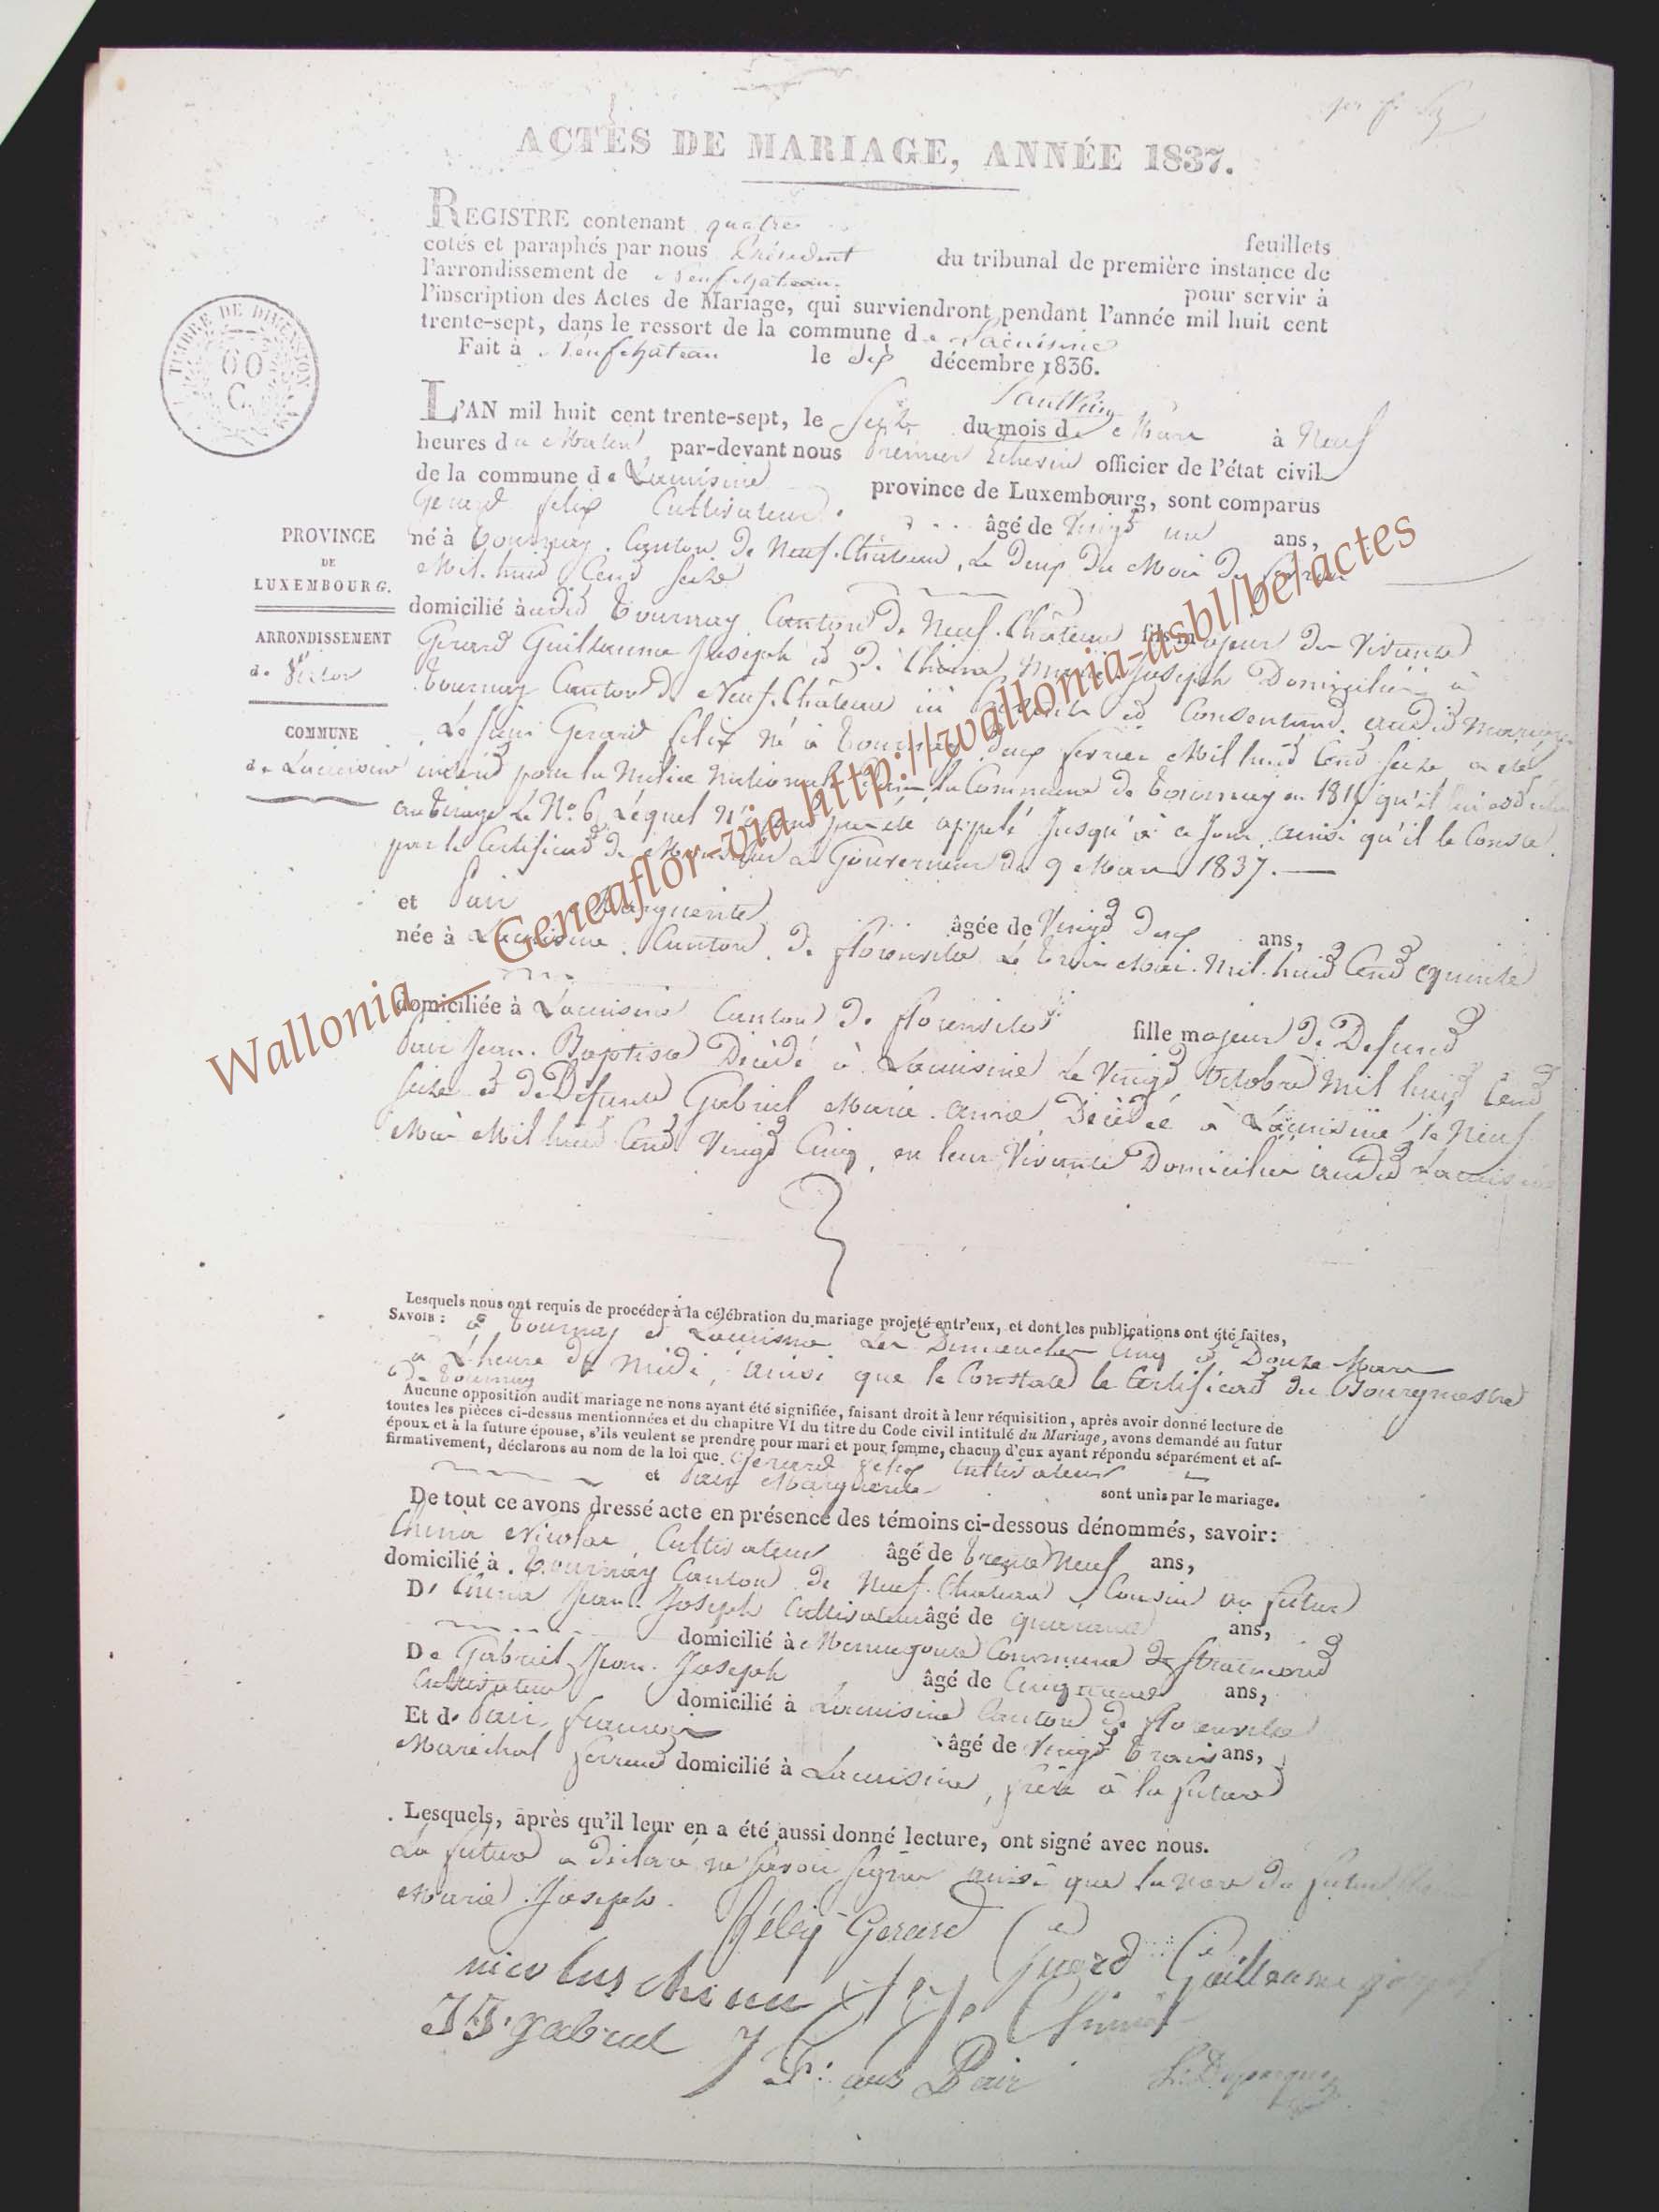 ACTES DE MARIAGE, ANNÉE 1837.
REGISTRE contenant quatre feuillets
cotés et paraphés par nous Président du tribunal de première instance de
l'arrondissement de Neufchâteau pour servir à
l'inscription des Actes de Mariage, qui surviendront pendant l'année mil huit cent
trente-sept, dans le ressort de la commune de Lacuisine
Fait à Neufchâteau le six décembre 1836.
TIMBRE DE DIMENSION
60
C.
L'AN mil huit cent trente-sept, le Seize du mois de Mars à Neuf
heures du Matin, par-devant nous Premier Echevin officier de l'état civil
de la commune de Lacuisine province de Luxembourg, sont comparus
Gerard felix Cultivateur âgé de Vingt un ans,
PROVINCE
DE
LUXEMBOURG.
ARRONDISSEMENT
de Virton
COMMUNE
de Lacuisine
né à Tournay. Canton de Neuf-Château, Le Deux Du Mois De fevrier
Mil. huit Cent Seize
domicilié audit Tournay Canton De Neuf-Château fils majeur de Vivants
Gerard Guillaume Joseph et De China Marie Joseph Domiciliés à
Tournay Canton De Neuf-Château ici Présents et Consentant audit Mariage
Le sieur Gerard felix Né à Tournay Deux fevrier Mil huit Cent Seize a été
inscrit pour la Milice Nationale dans la Commune de Tournay en qu'il lui est
au tirage Le No. 6 Lequel N'ayant pas été appelé Jusqu'à ce Jour ainsi qu'il le Conste
par le Certificat De Monsieur Le Gouverneur du 9 Mars 1837.
et Pair Marguerite âgée de Vingt Deux ans,
née à Lacuisine. Canton. De florenville Le trois Mai. Mil. huit Cent quinze
domiciliée à Lacuisine Canton De florenville fille majeur De Defunt
Pair Jean. Baptiste Décédé à Lacuisine Le Vingt Octobre Mil huit Cent
Seize et De Defunte Gabriel Marie. Anne Décédée à Lacuisine le Neuf
Mai Mil huit Cent Vingt Cinq, en leur Vivants Domiciliés audit Lacuisine
Lesquels nous ont requis de procéder à la célébration du mariage projeté entr'eux, et dont les publications ont été faites,
SAVOIR : à Tournay et Lacuisine Les Dimanches Cinq et Douze Mars
à L'heure de Midi, ainsi que le Constate le Certificat du Bourgmestre
de Tournay
Aucune opposition audit mariage ne nous ayant été signifiée, faisant droit à leur réquisition, après avoir donné lecture de
toutes les pièces ci-dessus mentionnées et du chapitre VI du titre du Code civil intitulé du Mariage, avons demandé au futur
époux et à la future épouse, s'ils veulent se prendre pour mari et pour femme, chacun d'eux ayant répondu séparément et af-
firmativement, déclarons au nom de la loi que Gerard felix Cultivateur
et Pair Marguerite sont unis par le mariage.
De tout ce avons dressé acte en présence des témoins ci-dessous dénommés, savoir:
China Nicolas Cultivateur âgé de trente Neuf ans,
domicilié à Tournay Canton de Neuf-Château Cousin au futur
D' China Jean. Joseph Cultivateur âgé de quarante ans,
domicilié à Menugoutte Commune De Straimont
De Gabriel Jean. Joseph âgé de ans,
Cultivateur domicilié à Lacuisine Canton De florenville
Et de Pair François âgé de Vingt trois ans,
Maréchal ferrant domicilié à Lacuisine, frère à la future
Lesquels, après qu'il leur en a été aussi donné lecture, ont signé avec nous.
La future a déclaré ne savoir signer ainsi que la mere du futur
Marie Joseph.
Félix Gerard Gerard Guillaume
nicolas china China
JJ. gabriel Pair
Wallonia __ Geneaflor-via http://wallonia-asbl/be/actes